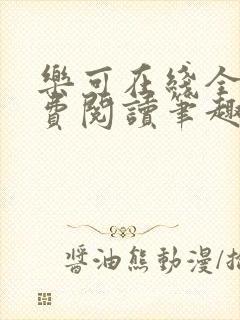 樂可在綫全
費閱讀筆趣
醬油熊動漫/插